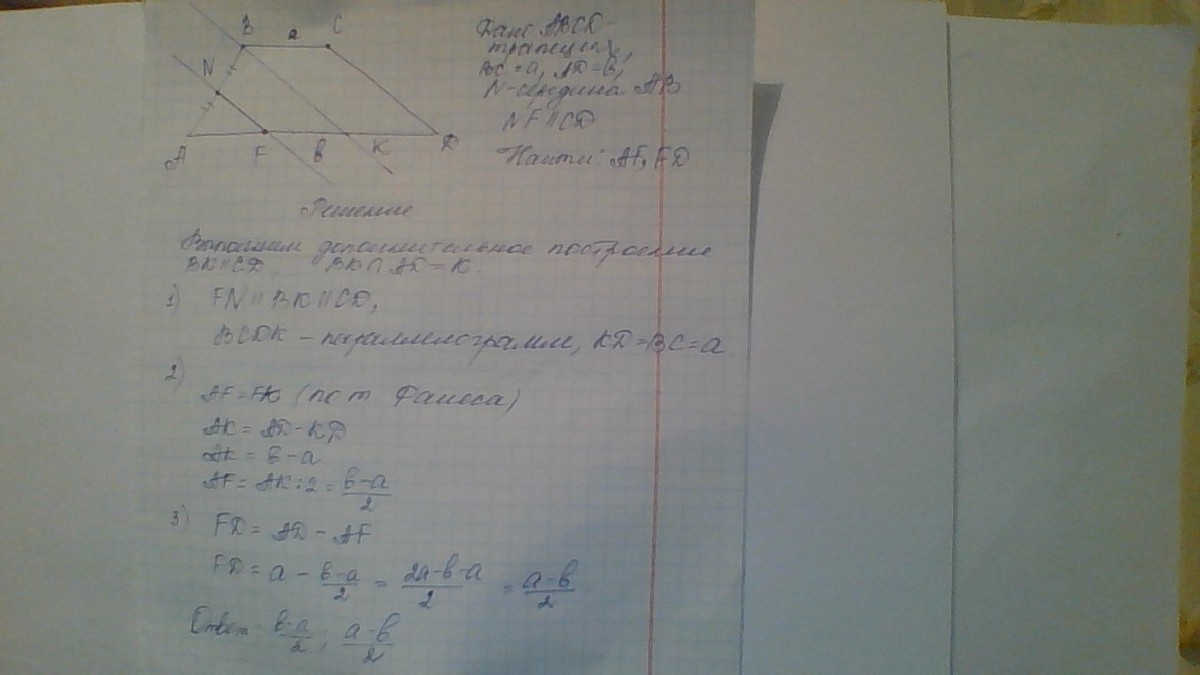 B a C
N
A F в K D
Дано: ABCD-
трапеция,
BC = a, AD = в,
N - середина AB
NF || CD
Найти: AF, FD
Решение
Выполним дополнительное построение
BK || CD, BK ∩ AD = K.
1) FN || BK || CD,
BCDK – параллелограмм, KD = BC = a
2)
AF = FK (по т Фалеса)
AK = AD - KD
AK = в - a
AF = AK : 2 = (в-a)/2
3) FD = AD - AF
FD = a - (в-a)/2 = (2a-в-a)/2 = (a-в)/2
Ответ: (в-a)/2 ; (a-в)/2